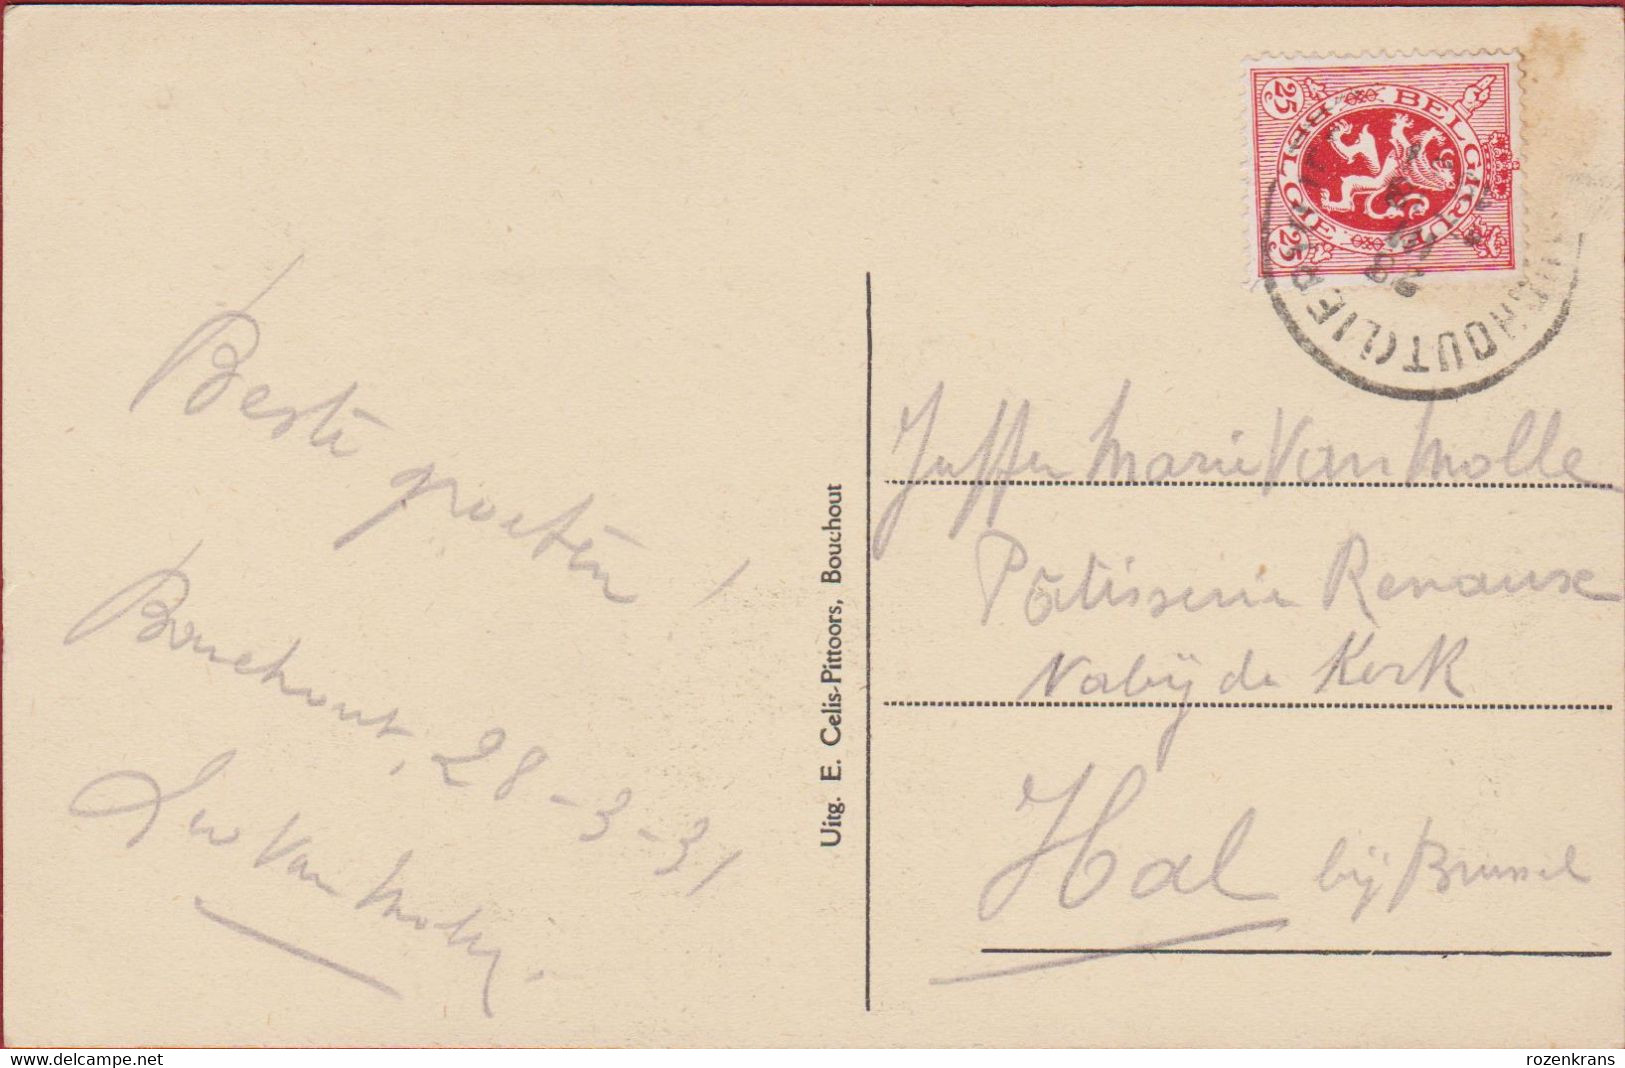 Beste groeten !
Bouchout, 28-3-31
Van
Uitg. E. Celis-Pittoors, Bouchout
25 BELGIQUE
25 BELGIE
BOUCHOUT (LIER)
Juffer Marie Van Molle
Pâtisserie Renaux
Nabij de Kerk
Hal bij Brussel
delcampe.net
rozenkrans